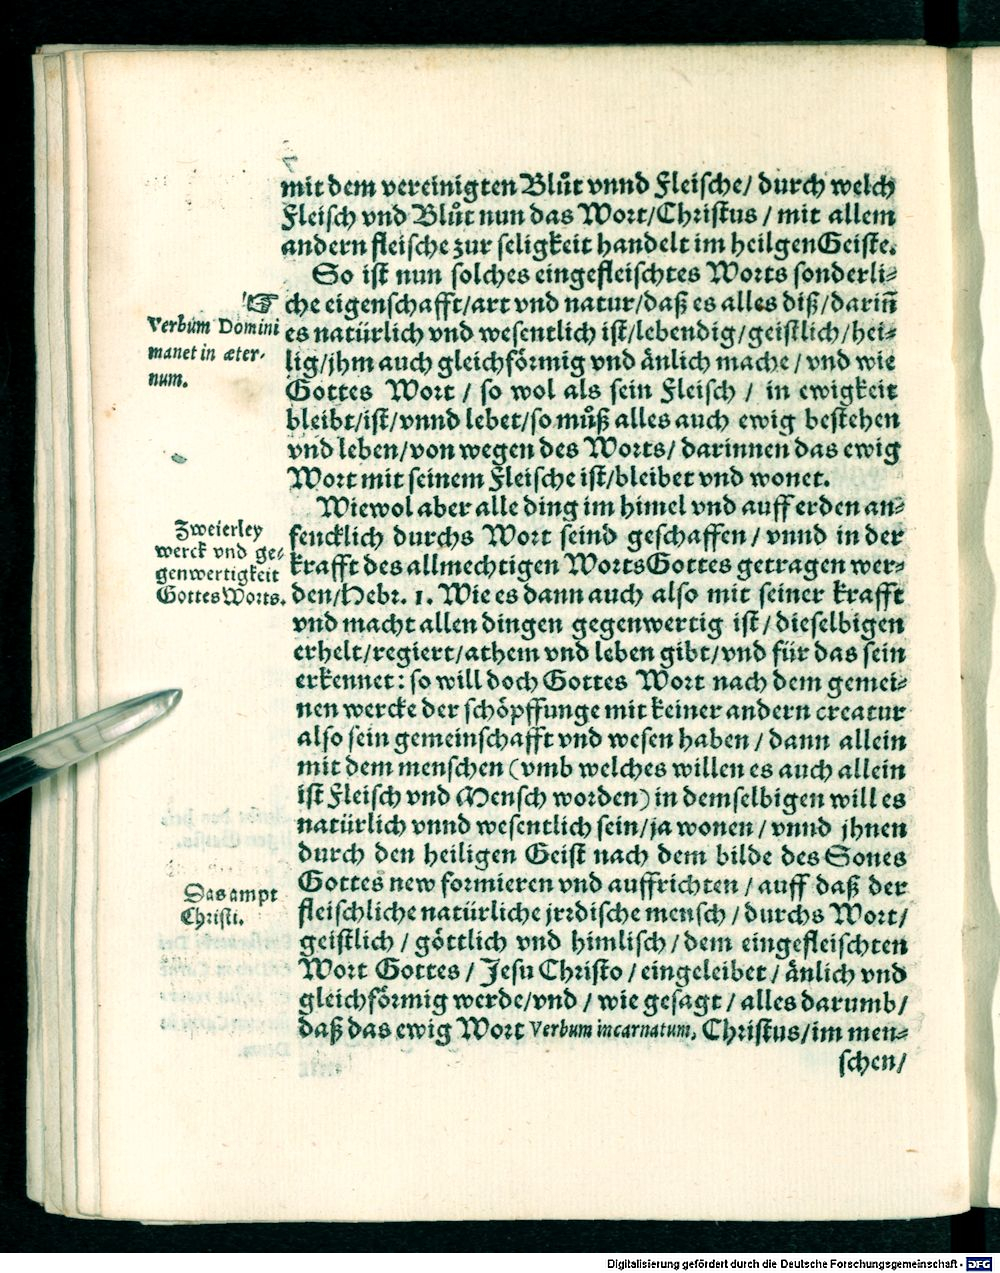 mit dem vereinigten Blůt vnnd Fleische/ durch welch
Fleisch vnd Blůt nun das Wort/Christus / mit allem
andern fleische zur seligkeit handelt im heilgen Geiste.
So ist nun solches eingefleischtes Worts sonderli⸗
che eigenschafft/art vnd natur/daß es alles diß/darin̄
es natürlich vnd wesentlich ist/lebendig/geistlich/hei⸗
lig/jhm auch gleichförmig vnd änlich mache / vnd wie
Gottes Wort / so wol als sein Fleisch / in ewigkeit
bleibt/ist/vnnd lebet/so můß alles auch ewig bestehen
vnd leben/von wegen des Worts/ darinnen das ewig
Wort mit seinem Fleische ist/bleibet vnd wonet.
Verbum Domini
manet in æter-
num.
Wiewol aber alle ding im himel vnd auff erden an⸗
fencklich durchs Wort seind geschaffen / vnnd in der
krafft des allmechtigen Worts Gottes getragen wer⸗
den/Hebr. 1. Wie es dann auch also mit seiner krafft
vnd macht allen dingen gegenwertig ist/ dieselbigen
erhelt/regiert/athem vnd leben gibt/vnd für das sein
erkennet: so will doch Gottes Wort nach dem gemei⸗
nen wercke der schöpffunge mit keiner andern creatur
also sein gemeinschafft vnd wesen haben / dann allein
mit dem menschen (vmb welches willen es auch allein
ist Fleisch vnd Mensch worden) in demselbigen will es
natürlich vnnd wesentlich sein/ja wonen / vnnd jhnen
durch den heiligen Geist nach dem bilde des Sones
Gottes new formieren vnd auffrichten / auff daß der
fleischliche natürliche jrrdische mensch / durchs Wort/
geistlich / göttlich vnd himlisch / dem eingefleischten
Wort Gottes / Jesu Christo / eingeleibet / änlich vnd
gleichförmig werde/vnd / wie gesagt / alles darumb/
daß das ewig Wort Verbum incarnatum, Christus/im men⸗
schen/
Zweierley
werck vnd ge⸗
genwertigkeit
Gottes Worts.
Das ampt
Christi.
Digitalisierung gefördert durch die Deutsche Forschungsgemeinschaft - DFG